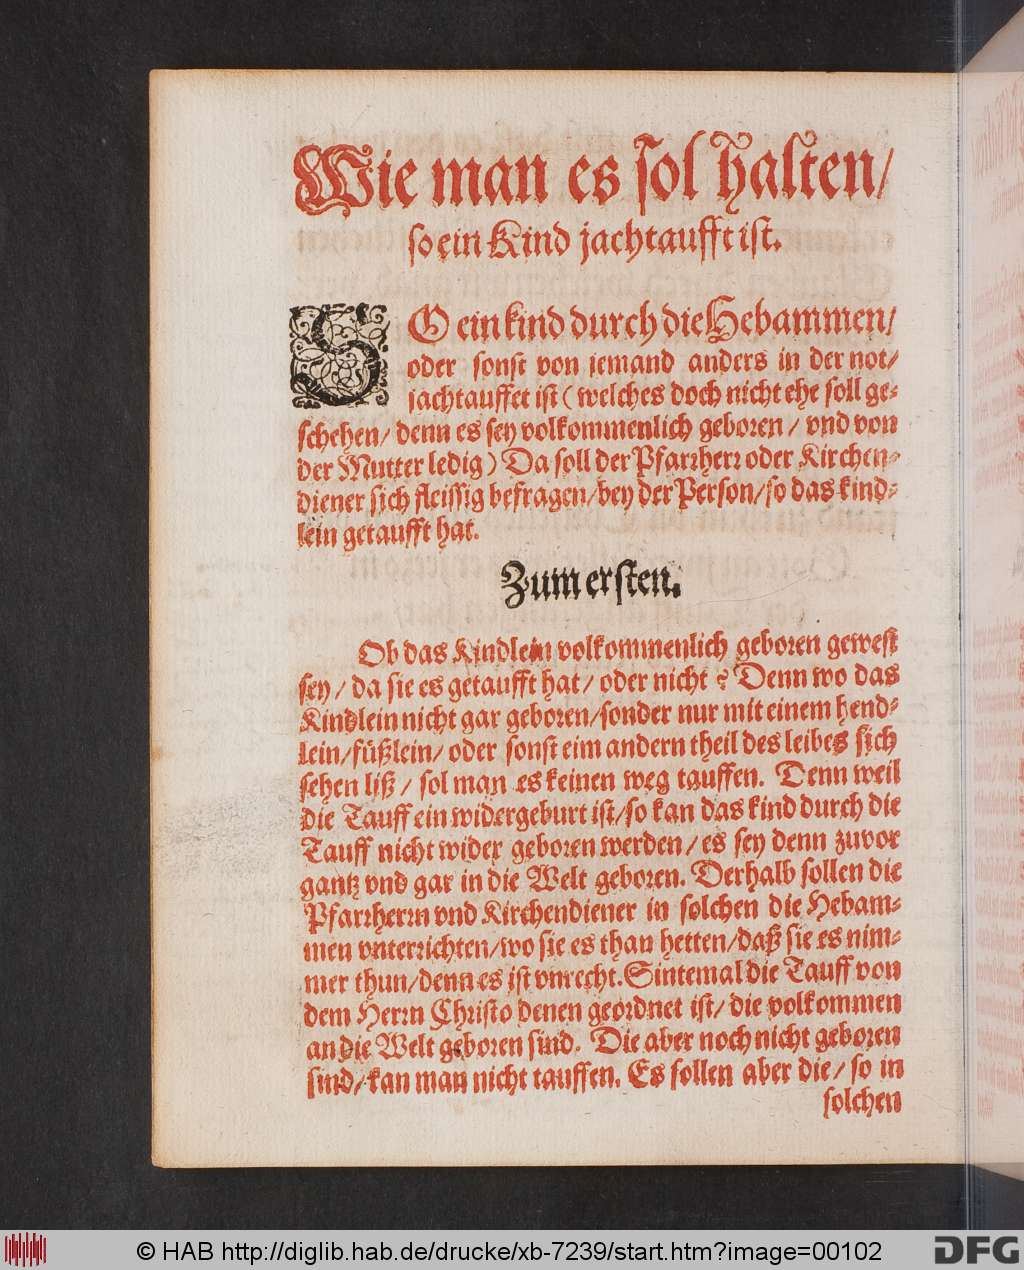 Wie man es sol halten/
so ein Kind jachtaufft ist.
SO ein kind durch die Hebammen/
oder sonst von jemand anders in der not/
jachtauffet ist (welches doch nicht ehe soll ge-
schehen/ denn es sey volkommenlich geboren/ vnd von
der Mutter ledig) Da soll der Pfarrherr oder Kirchen-
diener sich fleissig befragen/ bey der Person/ so das kind-
lein getaufft hat.
Zum ersten.
Ob das Kindlein volkommenlich geboren gewest
sey/ da sie es getaufft hat/ oder nicht? Denn wo das
Kindlein nicht gar geboren/ sonder nur mit einem hend-
lein/ füßlein/ oder sonst eim andern theil des leibes sich
sehen liß/ sol man es keinen weg tauffen. Denn weil
die Tauff ein widergeburt ist/ so kan das kind durch die
Tauff nicht wider geboren werden/ es sey denn zuvor
gantz vnd gar in die Welt geboren. Derhalb sollen die
Pfarrherrn vnd Kirchendiener in solchen die Hebam-
men vnterrichten/ wo sie es than hetten/ daß sie es nim-
mer thun/ denn es ist vnrecht. Sintemal die Tauff von
dem Herrn Christo denen geordnet ist/ die volkommen
an die Welt geboren sind. Die aber noch nicht geboren
sind/ kan man nicht tauffen. Es sollen aber die/ so in
solchen
© HAB http://diglib.hab.de/drucke/xb-7239/start.htm?image=00102
DFG